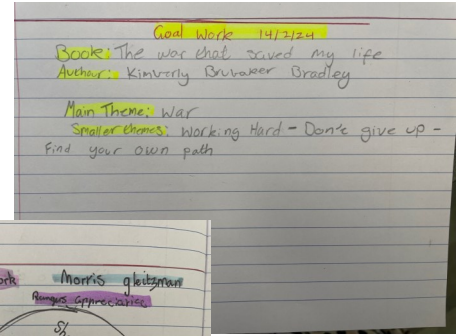 Goal Work 14/2/24
Book: The war that saved my life
Authour: Kimberly Brubaker Bradley
Main Theme: War
Smaller themes: Working Hard - Don't give up -
Find your own path
Morris gleitzman